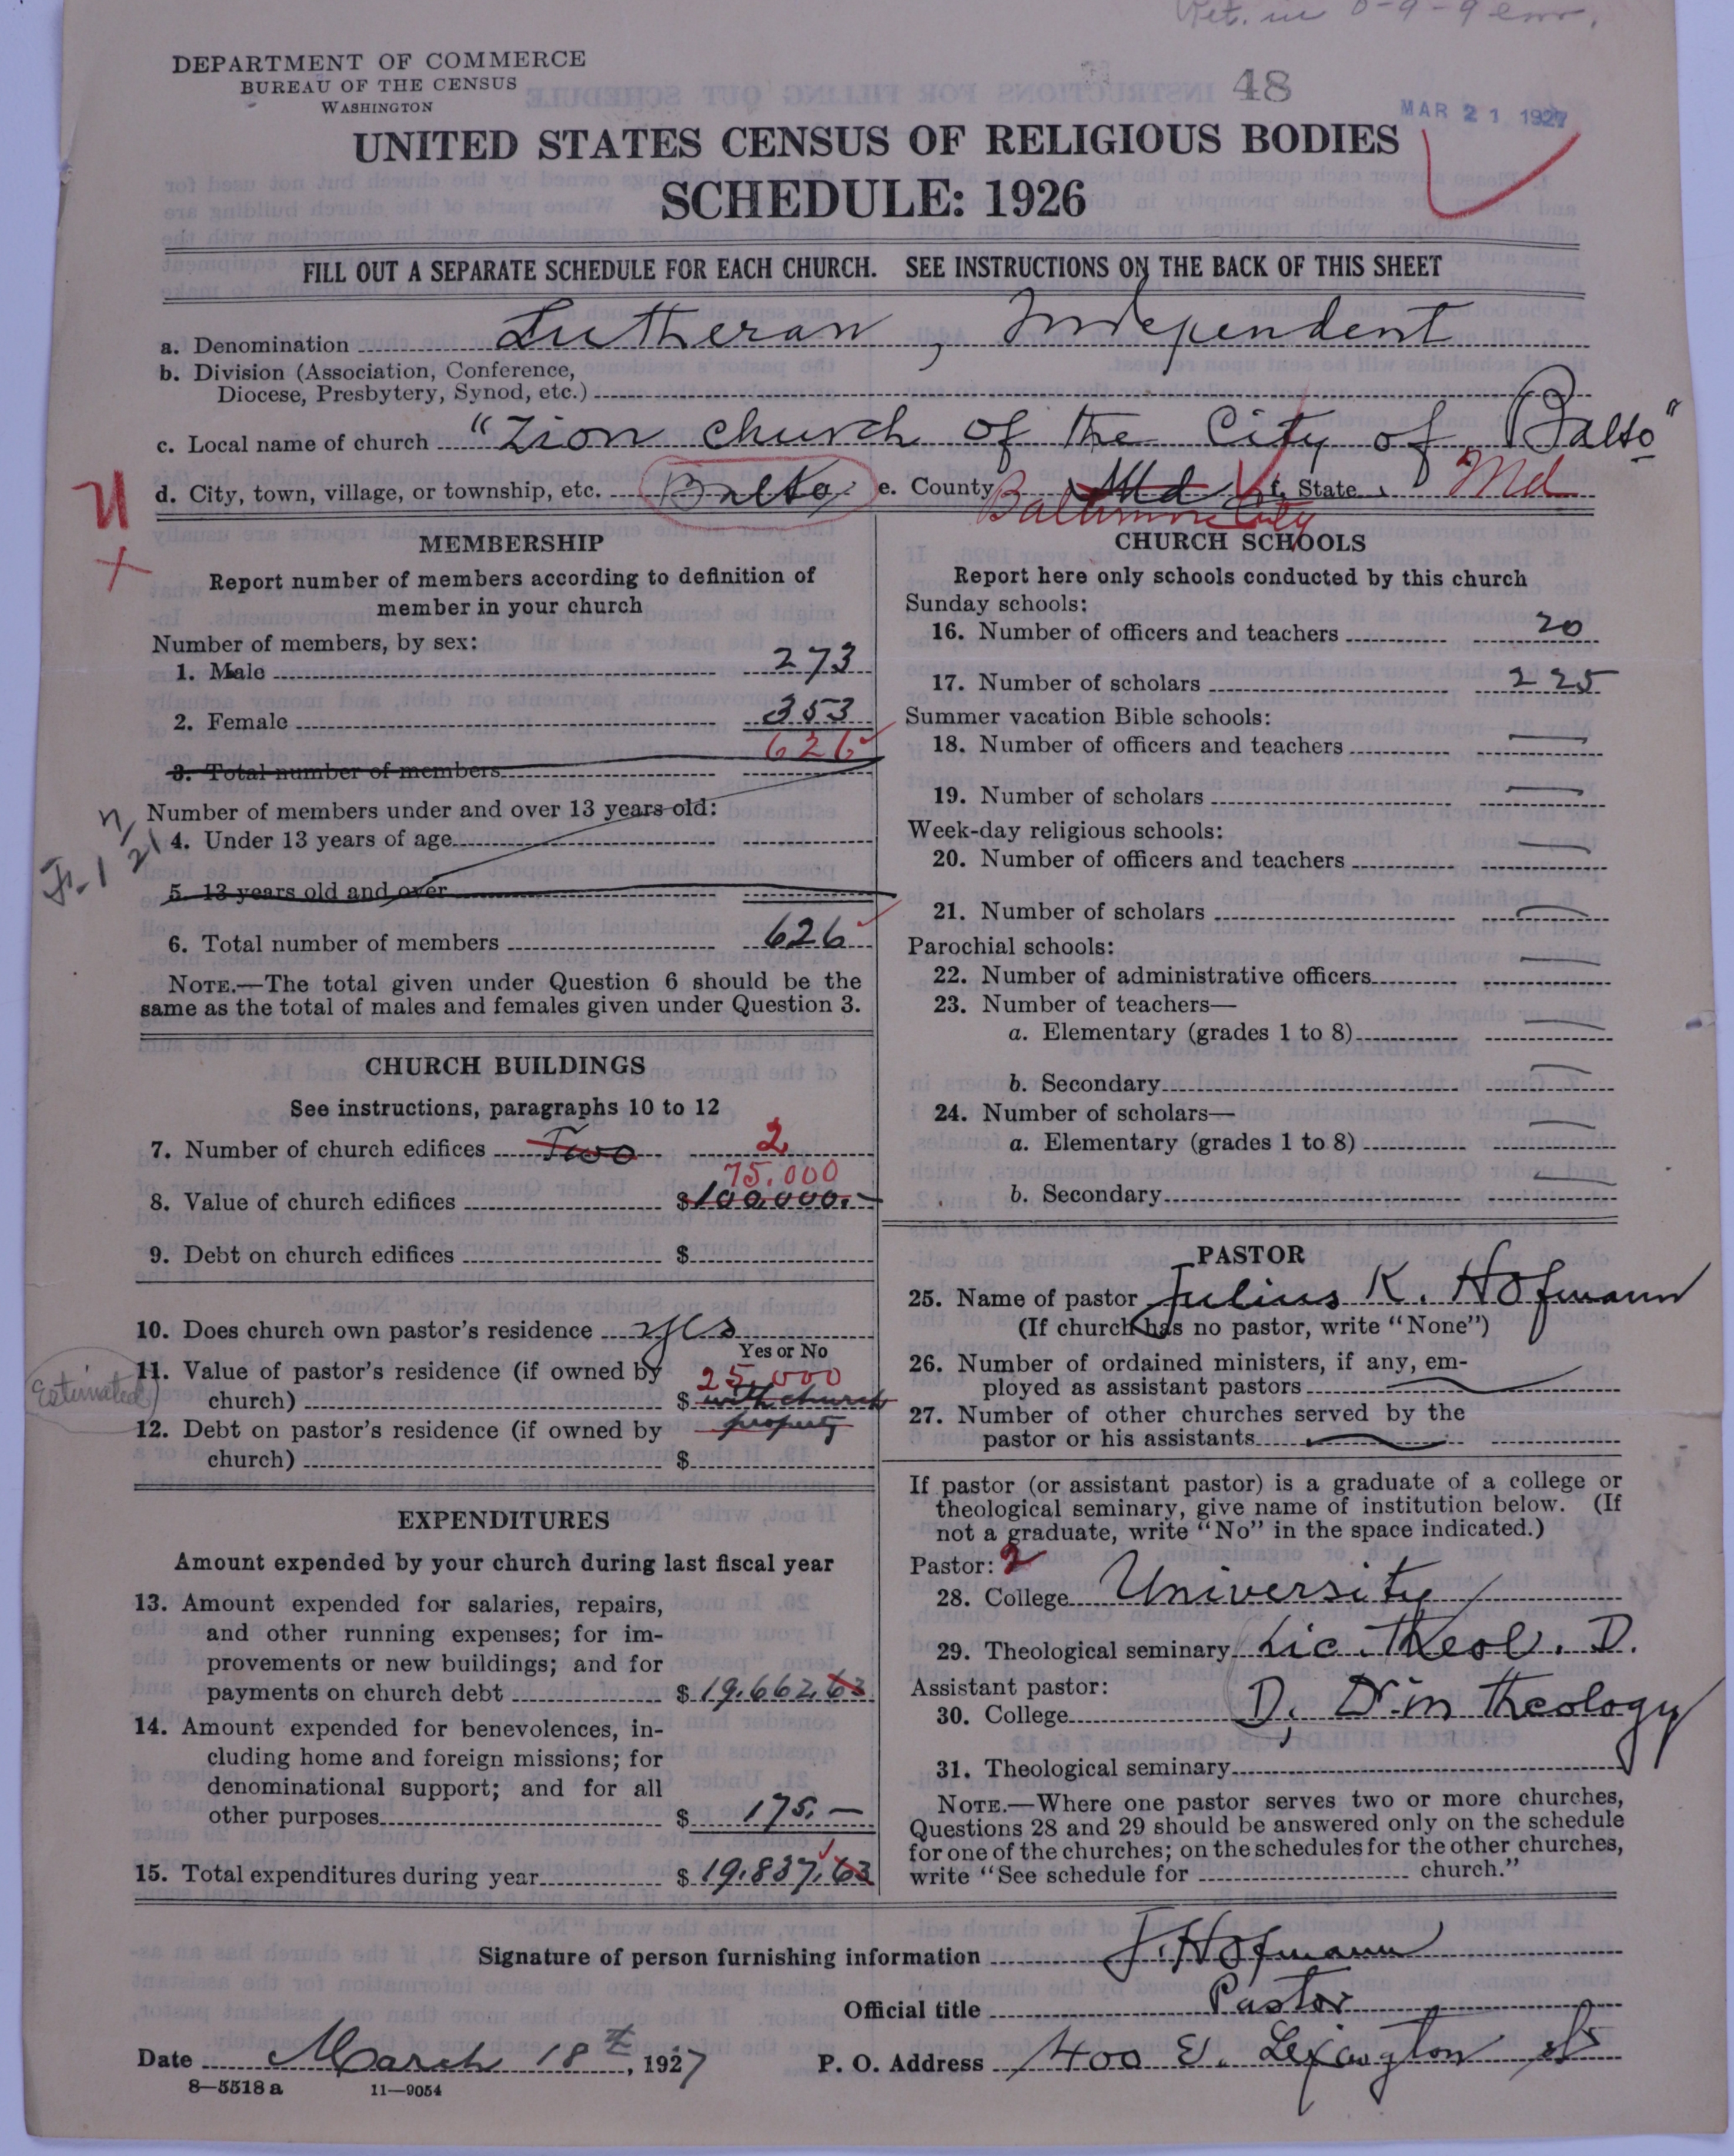 DEPARTMENT OF COMMERCE
BUREAU OF THE CENSUS
WASHINGTON
48
MAR 21 1927
UNITED STATES CENSUS OF RELIGIOUS BODIES
SCHEDULE: 1926
FILL OUT A SEPARATE SCHEDULE FOR EACH CHURCH. SEE INSTRUCTIONS ON THE BACK OF THIS SHEET
a. Denomination Lutheran, Independent
b. Division (Association, Conference,
Diocese, Presbytery, Synod, etc.)
c. Local name of church "Zion church of the City of Balto"
d. City, town, village, or township, etc. Balto. e. County Md Baltimore City f. State Md
MEMBERSHIP
Report number of members according to definition of
member in your church
Number of members, by sex:
1. Male 273
2. Female 353
626
3. Total number of members
Number of members under and over 13 years old:
4. Under 13 years of age
5. 13 years old and over
6. Total number of members 626
NOTE.—The total given under Question 6 should be the
same as the total of males and females given under Question 3.
CHURCH BUILDINGS
See instructions, paragraphs 10 to 12
7. Number of church edifices Two 2
75.000
8. Value of church edifices $100,000.-
9. Debt on church edifices $
10. Does church own pastor's residence yes
Yes or No
Estimated
11. Value of pastor's residence (if owned by 25,000
church) $ with church
12. Debt on pastor's residence (if owned by property
church) $
EXPENDITURES
Amount expended by your church during last fiscal year
13. Amount expended for salaries, repairs,
and other running expenses; for im-
provements or new buildings; and for
payments on church debt $19,662.63
14. Amount expended for benevolences, in-
cluding home and foreign missions; for
denominational support; and for all
other purposes $175.—
15. Total expenditures during year $19,837.63
CHURCH SCHOOLS
Report here only schools conducted by this church
Sunday schools:
16. Number of officers and teachers 20
17. Number of scholars 225
Summer vacation Bible schools:
18. Number of officers and teachers —
19. Number of scholars —
Week-day religious schools:
20. Number of officers and teachers —
21. Number of scholars —
Parochial schools:
22. Number of administrative officers —
23. Number of teachers—
a. Elementary (grades 1 to 8) —
b. Secondary —
24. Number of scholars—
a. Elementary (grades 1 to 8) —
b. Secondary —
PASTOR
25. Name of pastor Julius K. Hofmann
(If church has no pastor, write "None")
26. Number of ordained ministers, if any, em-
ployed as assistant pastors —
27. Number of other churches served by the
pastor or his assistants —
If pastor (or assistant pastor) is a graduate of a college or
theological seminary, give name of institution below. (If
not a graduate, write "No" in the space indicated.)
Pastor: 2
28. College University
29. Theological seminary Lic. Theol. D.
Assistant pastor:
30. College D, Dr in Theology
31. Theological seminary
NOTE.—Where one pastor serves two or more churches,
Questions 28 and 29 should be answered only on the schedule
for one of the churches; on the schedules for the other churches,
write "See schedule for church."
Signature of person furnishing information J. Hofmann
Official title Pastor
Date March 18th, 1927 P. O. Address 400 E. Lexington St
8—5518 a 11—9054